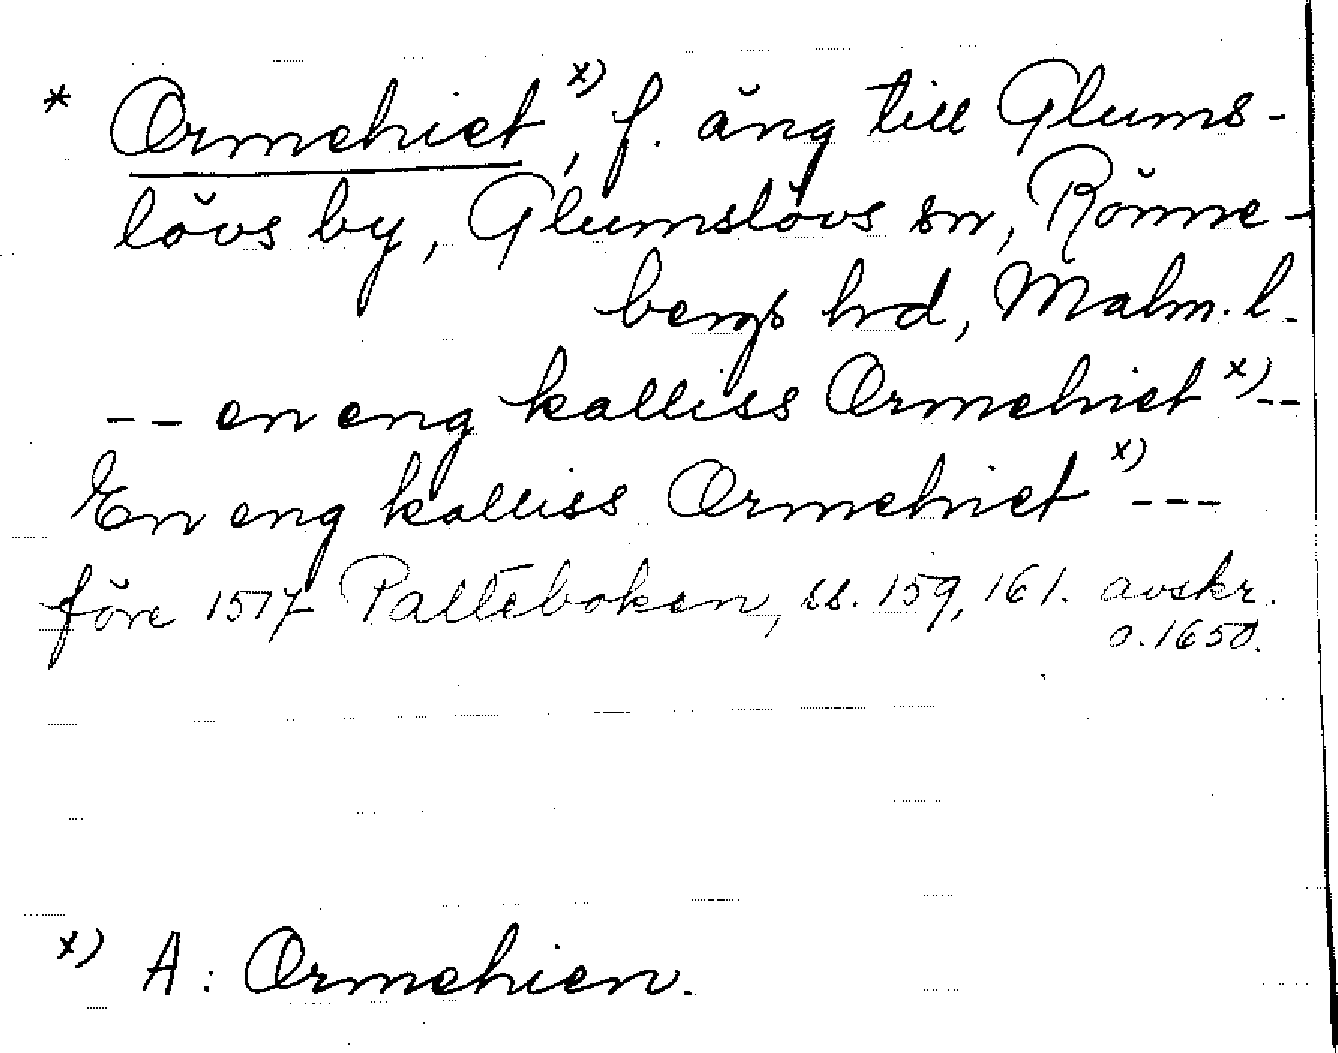 * Ormehiet x), f. äng till Glums-
lövs by, Glumslövs sn, Rönne-
bergs hd, Malm. l.
-- en eng kalliss Ormehiet x) --
En eng kalliss Ormehiet x) ---
före 1517 Palteboken, ss. 159, 161. avskr.
o. 1650.
x) A: Ormehien.